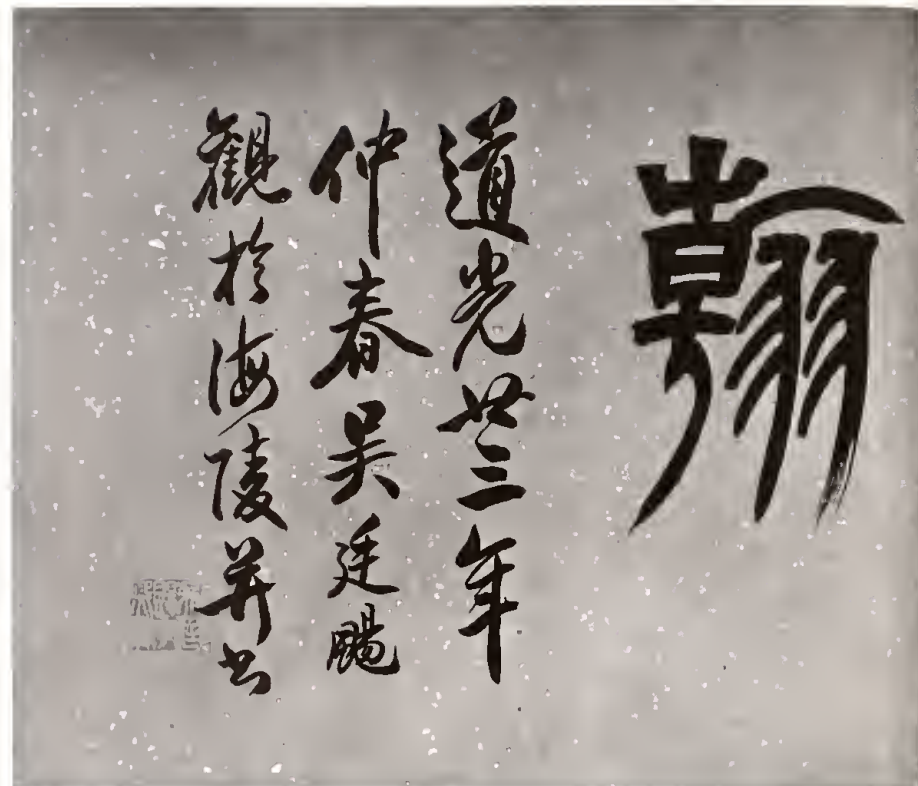 翰
道光廿三年
仲春吴廷颺
觀於海陵并書